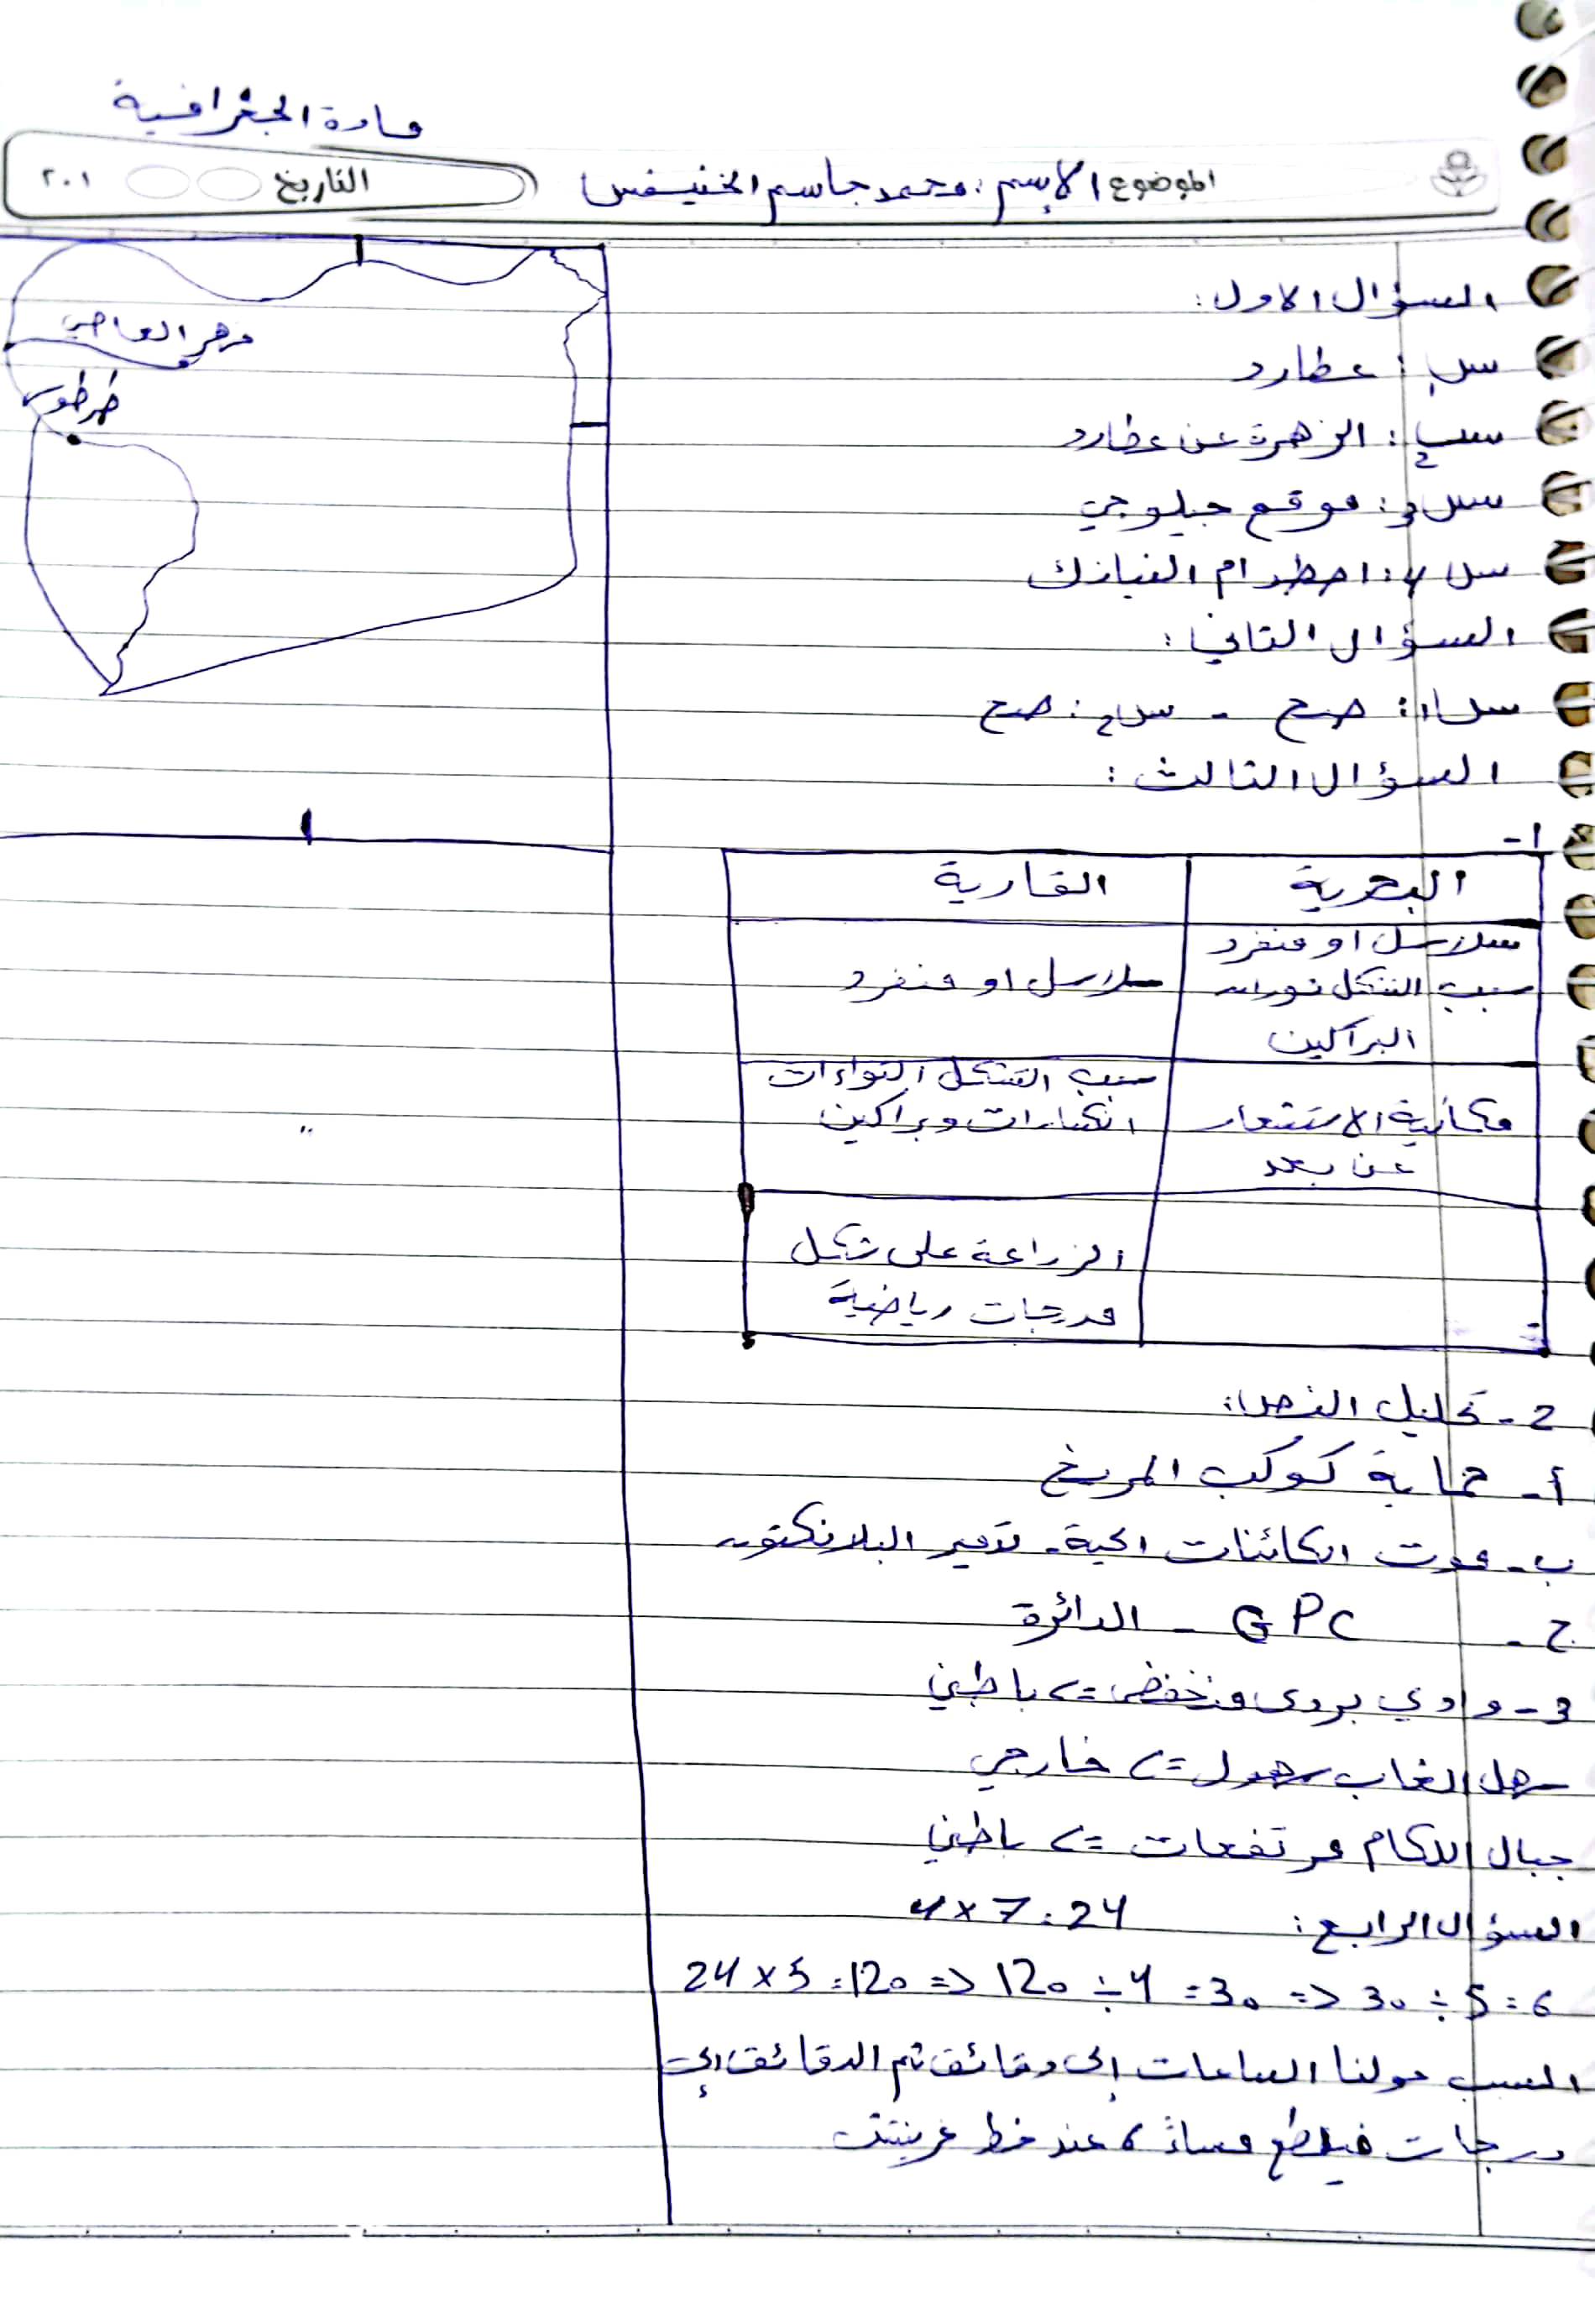 مادة الجغرافية
الموضوع الإسم: محمد جاسم الخنيفس
التاريخ ٢٠١
السؤال الاول:
س1: عطارد
س2: الزهرة عن عطارد
س3: موقع جيلوجي
س4: اصطدام النيازك
السؤال الثاني:
س1: صح - س2: صح
السؤال الثالث:
1-
البحرية القارية
سلاسل او منفرد
سبب الشكل ثوران
البراكين
سلاسل او منفرد
مكانية الاستشعار
عن بعد
سبب التشكل التواءات
انكسارات وبراكين
الزراعة على شكل
مدرجات رياضية
2- تحليل النص:
أ- حماية كوكب المريخ
ب- موت الكائنات الحية- تدمير البلانكتون
ج- GPC - الدائرة
3- وادي بردى منخفض => باطني
سهل الغاب سهول => خارجي
جبال اللكام مرتفعات => باطني
السؤال الرابع: 4x7:24
24x5=120 => 120÷4=30 => 30÷5=6
السبب حولنا الساعات إلى دقائق ثم الدقائق إلى
درجات فيطلع مساءً 6 عند خط غرينتش
نهر العاصي
طرطوس